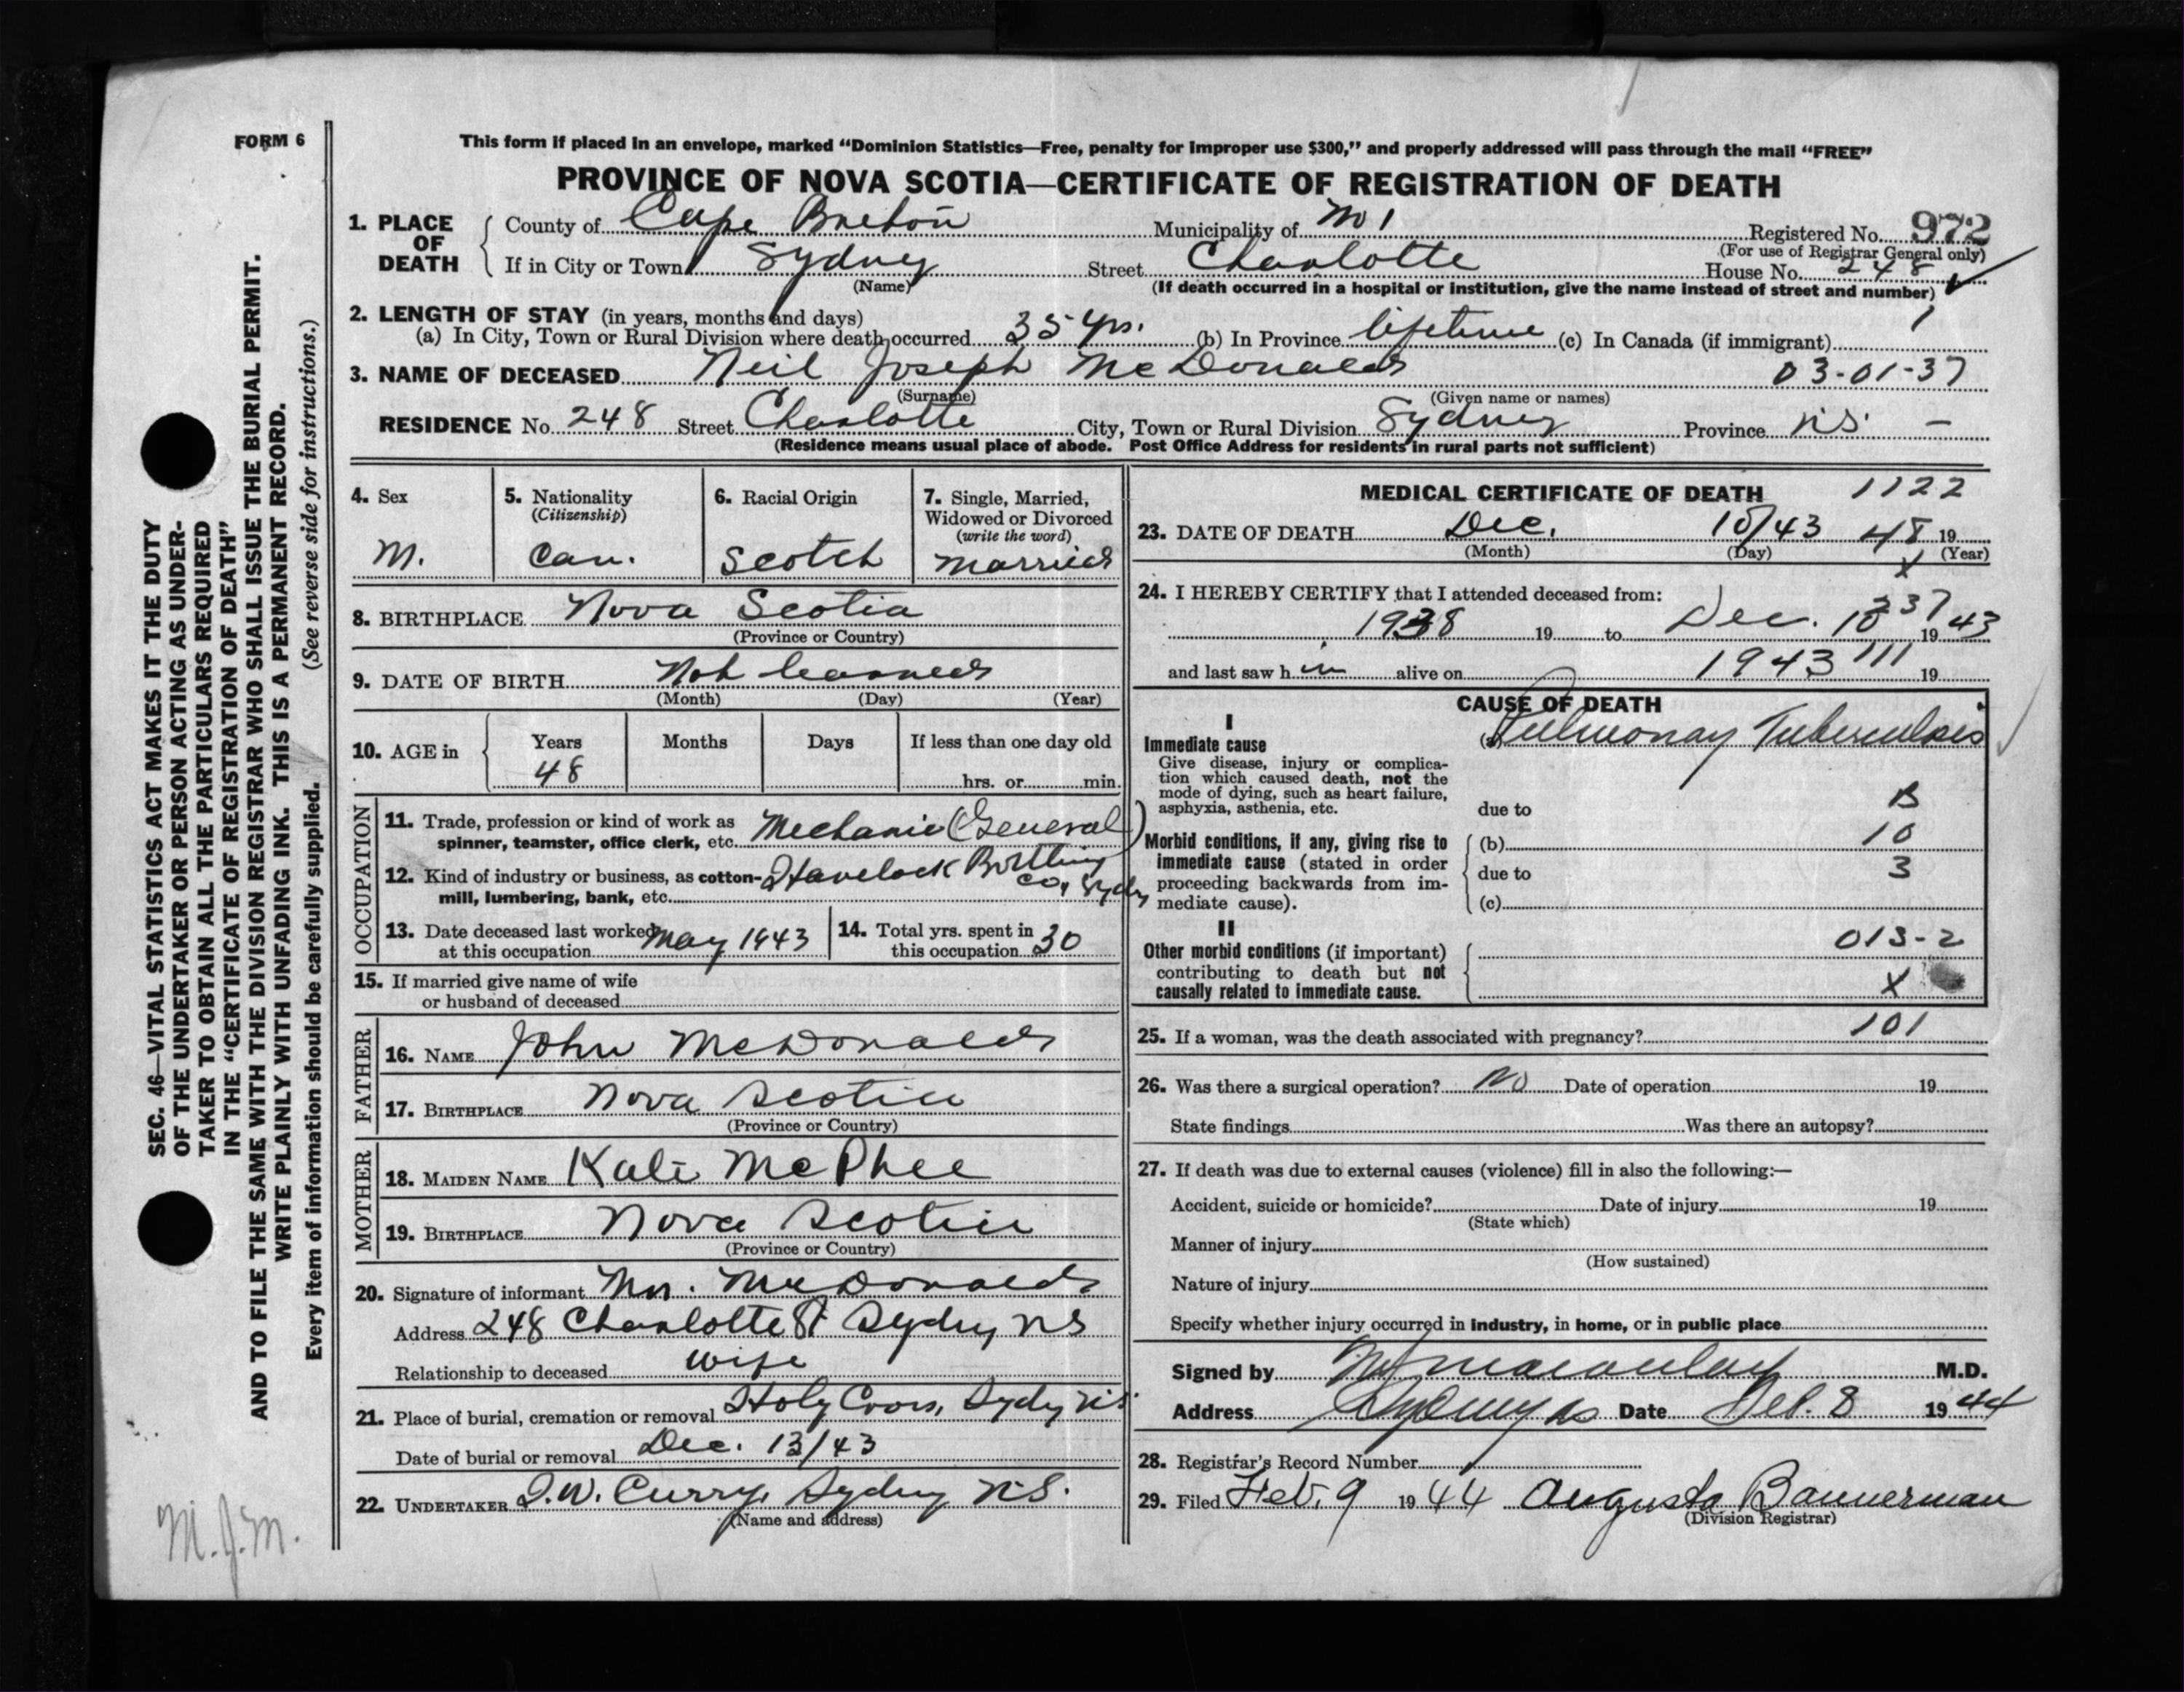 FORM 6
This form if placed in an envelope, marked "Dominion Statistics—Free, penalty for improper use $300," and properly addressed will pass through the mail "FREE"
PROVINCE OF NOVA SCOTIA—CERTIFICATE OF REGISTRATION OF DEATH
SEC. 46—VITAL STATISTICS ACT MAKES IT THE DUTY
OF THE UNDERTAKER OR PERSON ACTING AS UNDER-
TAKER TO OBTAIN ALL THE PARTICULARS REQUIRED
IN THE "CERTIFICATE OF REGISTRATION OF DEATH"
AND TO FILE THE SAME WITH THE DIVISION REGISTRAR WHO SHALL ISSUE THE BURIAL PERMIT.
WRITE PLAINLY WITH UNFADING INK. THIS IS A PERMANENT RECORD.
Every item of information should be carefully supplied. (See reverse side for instructions.)
1. PLACE OF DEATH
County of Cape Breton Municipality of No 1 Registered No. 972
(For use of Registrar General only)
If in City or Town Sydney Street Charlotte House No. 248
(Name) (If death occurred in a hospital or institution, give the name instead of street and number)
2. LENGTH OF STAY (in years, months and days) 1
(a) In City, Town or Rural Division where death occurred 35 yrs. (b) In Province lifetime (c) In Canada (if immigrant)
3. NAME OF DECEASED Neil Joseph McDonald 03-01-37
(Surname) (Given name or names)
RESIDENCE No. 248 Street Charlotte City, Town or Rural Division Sydney Province N.S. —
(Residence means usual place of abode. Post Office Address for residents in rural parts not sufficient)
4. Sex
M.
5. Nationality
(Citizenship)
Can.
6. Racial Origin
Scotch
7. Single, Married,
Widowed or Divorced
(write the word)
Married
8. BIRTHPLACE Nova Scotia
(Province or Country)
9. DATE OF BIRTH Not learned
(Month) (Day) (Year)
10. AGE in Years Months Days If less than one day old
48 hrs. or min.
OCCUPATION
11. Trade, profession or kind of work as
spinner, teamster, office clerk, etc. Mechanic (General)
12. Kind of industry or business, as cotton-
mill, lumbering, bank, etc. Havelock Bottling
Co, Sydney
13. Date deceased last worked
at this occupation May 1943
14. Total yrs. spent in
this occupation 30
15. If married give name of wife
or husband of deceased
FATHER
16. NAME John McDonald
17. BIRTHPLACE Nova Scotia
(Province or Country)
MOTHER
18. MAIDEN NAME Kate McPhee
19. BIRTHPLACE Nova Scotia
(Province or Country)
20. Signature of informant Mrs. McDonald
Address 248 Charlotte St Sydney NS
Relationship to deceased wife
21. Place of burial, cremation or removal Holy Cross, Sydney NS
Date of burial or removal Dec. 13/43
22. UNDERTAKER Curry, Sydney N.S.
(Name and address)
M.J.M.
MEDICAL CERTIFICATE OF DEATH 1122
23. DATE OF DEATH Dec. 10/43 48 19
(Month) (Day) (Year)
X
24. I HEREBY CERTIFY that I attended deceased from:
337
1938 19 to Dec. 10 1943
and last saw h im alive on 1943 111 19
CAUSE OF DEATH
I
Immediate cause
Give disease, injury or complica-
tion which caused death, not the
mode of dying, such as heart failure,
asphyxia, asthenia, etc.
(a) Pulmonary Tuberculosis
due to B
Morbid conditions, if any, giving rise to
immediate cause (stated in order
proceeding backwards from im-
mediate cause).
(b) 10
due to 3
(c)
II
Other morbid conditions (if important)
contributing to death but not
causally related to immediate cause.
013-2
X
25. If a woman, was the death associated with pregnancy? 101
26. Was there a surgical operation? No Date of operation 19
State findings Was there an autopsy?
27. If death was due to external causes (violence) fill in also the following:—
Accident, suicide or homicide? Date of injury 19
(State which)
Manner of injury
(How sustained)
Nature of injury
Specify whether injury occurred in industry, in home, or in public place
Signed by Macaulay M.D.
Address Sydney NS Date Feb. 8 1944
28. Registrar's Record Number
29. Filed Feb. 9 1944 Augusta Bannerman
(Division Registrar)